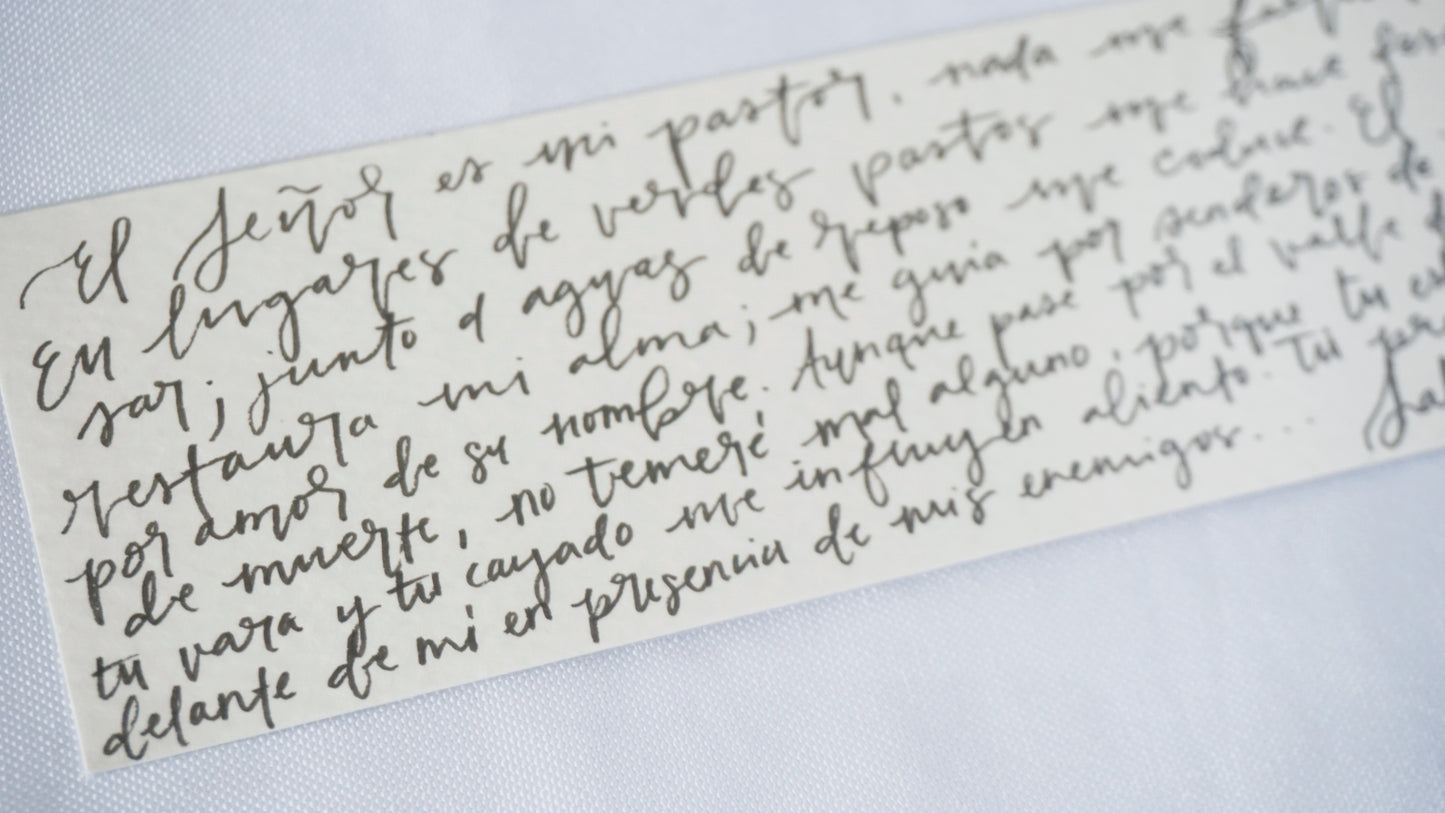 El Señor es mi pastor, nada me
En lugares de verdes pastos me hace
sar; junto a aguas de reposo me coduce. El
restaura mi alma; me guia por senderos de
por amor de su nombre. Aunque pase por el valle
de muerte, no temeré mal alguno, porque tu
tu vara y tu cayado me influyen aliento. Tu
delante de mi en presencia de mis enemigos... Sal